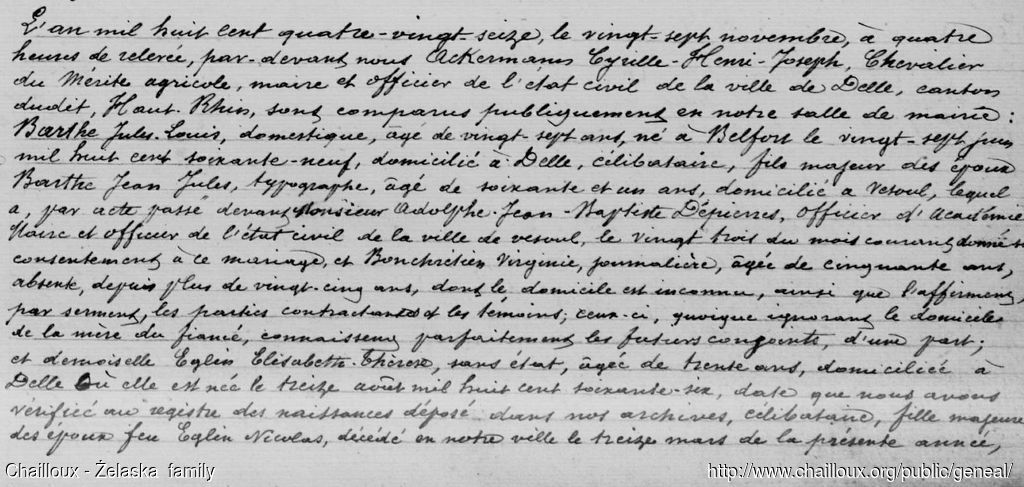 L'an mil huit cent quatre-vingt-seize, le vingt-sept novembre, à quatre
heures de relevée, par-devant nous Ackermann Cyrille-Henri-Joseph, Chevalier
du Mérite agricole, maire et officier de l'état civil de la ville de Delle, canton
dudit, Haut-Rhin, sont comparus publiquement en notre salle de mairie :
Barthe Jules-Louis, domestique, âgé de vingt-sept ans, né à Belfort le vingt-sept juin
mil huit cent soixante-neuf, domicilié à Delle, célibataire, fils majeur des époux
Barthe Jean Jules, typographe, âgé de soixante et un ans, domicilié à Vesoul, lequel
a, par acte passé devant Monsieur Adolphe-Jean-Baptiste Dépierres, officier d'Académie
Maire et officier de l'état civil de la ville de Vesoul, le vingt trois du mois courant, donné son
consentement à ce mariage, et Bonchrétien Virginie, journalière, âgée de cinquante ans,
absente, depuis plus de vingt-cinq ans, dont le domicile est inconnu, ainsi que l'affirment,
par serment, les parties contractantes et les témoins ; ceux-ci, quoique ignorant le domicile
de la mère du fiancé, connaissent parfaitement les futurs conjoints, d'une part ;
et demoiselle Eglin Elisabeth-Thérèse, sans état, âgée de trente ans, domiciliée à
Delle où elle est née le treize août mil huit cent soixante-six, date que nous avons
vérifiée au registre des naissances déposé dans nos archives, célibataire, fille majeure
des époux feu Eglin Nicolas, décédé en notre ville le treize mars de la présente année,
Chailloux - Żelaska family
http://www.chailloux.org/public/geneal/